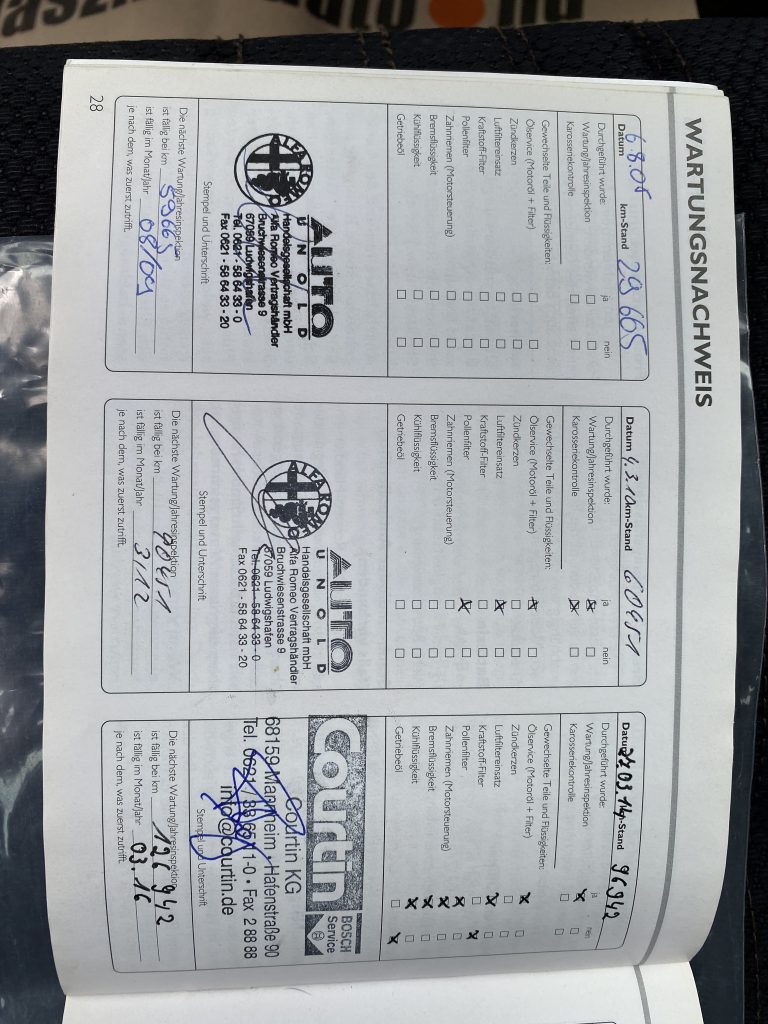 WARTUNGSNACHWEIS
Datum 6.8.08 km-Stand 29 665
Durchgeführt wurde: ja nein
Wartung/Jahresinspektion
Karosseriekontrolle
Gewechselte Teile und Flüssigkeiten:
Ölservice (Motoröl + Filter)
Zündkerzen
Luftfiltereinsatz
Kraftstoff-Filter
Pollenfilter
Zahnriemen (Motorsteuerung)
Bremsflüssigkeit
Kühlflüssigkeit
Getriebeöl
AUTO
UNOLD
Handelsgesellschaft mbH
Alfa Romeo Vertragshändler
Bruchwiesenstrasse 9
67059 Ludwigshafen
Tel. 0621 - 58 64 33 - 0
Fax 0621 - 58 64 33 - 20
ALFA ROMEO
Stempel und Unterschrift
Die nächste Wartung/Jahresinspektion
ist fällig bei km 59665
ist fällig im Monat/Jahr 08/09
je nach dem, was zuerst zutrifft.
28
Datum 4.3.10 km-Stand 60451
Durchgeführt wurde: ja nein
Wartung/Jahresinspektion x
Karosseriekontrolle x
Gewechselte Teile und Flüssigkeiten:
Ölservice (Motoröl + Filter) x
Zündkerzen
Luftfiltereinsatz x
Kraftstoff-Filter
Pollenfilter x
Zahnriemen (Motorsteuerung)
Bremsflüssigkeit
Kühlflüssigkeit
Getriebeöl
AUTO
UNOLD
Handelsgesellschaft mbH
Alfa Romeo Vertragshändler
Bruchwiesenstrasse 9
67059 Ludwigshafen
Tel. 0621 - 58 64 33 - 0
Fax 0621 - 58 64 33 - 20
ALFA ROMEO
Stempel und Unterschrift
Die nächste Wartung/Jahresinspektion
ist fällig bei km 90451
ist fällig im Monat/Jahr 3/12
je nach dem, was zuerst zutrifft.
Datum 27.03.14 km-Stand 96942
Durchgeführt wurde: ja nein
Wartung/Jahresinspektion x
Karosseriekontrolle
Gewechselte Teile und Flüssigkeiten:
Ölservice (Motoröl + Filter) x
Zündkerzen
Luftfiltereinsatz x
Kraftstoff-Filter x
Pollenfilter x
Zahnriemen (Motorsteuerung) x
Bremsflüssigkeit x
Kühlflüssigkeit x
Getriebeöl x
Courtin BOSCH Service
Courtin KG
68159 Mannheim • Hafenstraße 90
Tel. 0621 / 33 65 11-0 • Fax 2 88 88
info@courtin.de
Stempel und Unterschrift
Die nächste Wartung/Jahresinspektion
ist fällig bei km 126942
ist fällig im Monat/Jahr 03.16
je nach dem, was zuerst zutrifft.